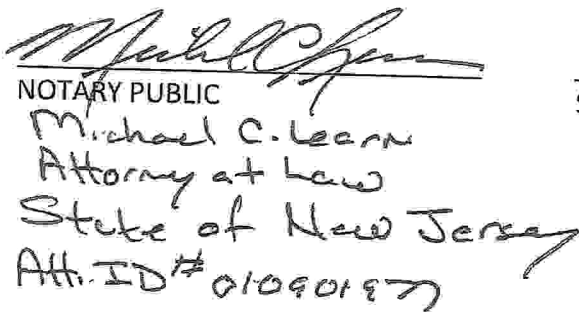 NOTARY PUBLIC
Michael C. Learn
Attorney at Law
State of New Jersey
Att. ID #